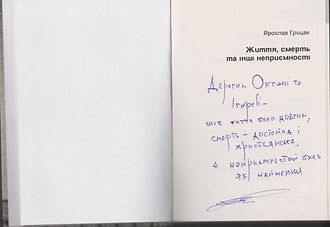 Ярослав Грицак
Життя, смерть
та інші неприємності
Дорогим Оксані та
Ігореві –
щоб життя було довгим,
смерть – достойна і
християнська,
а неприємностей було
як найменше